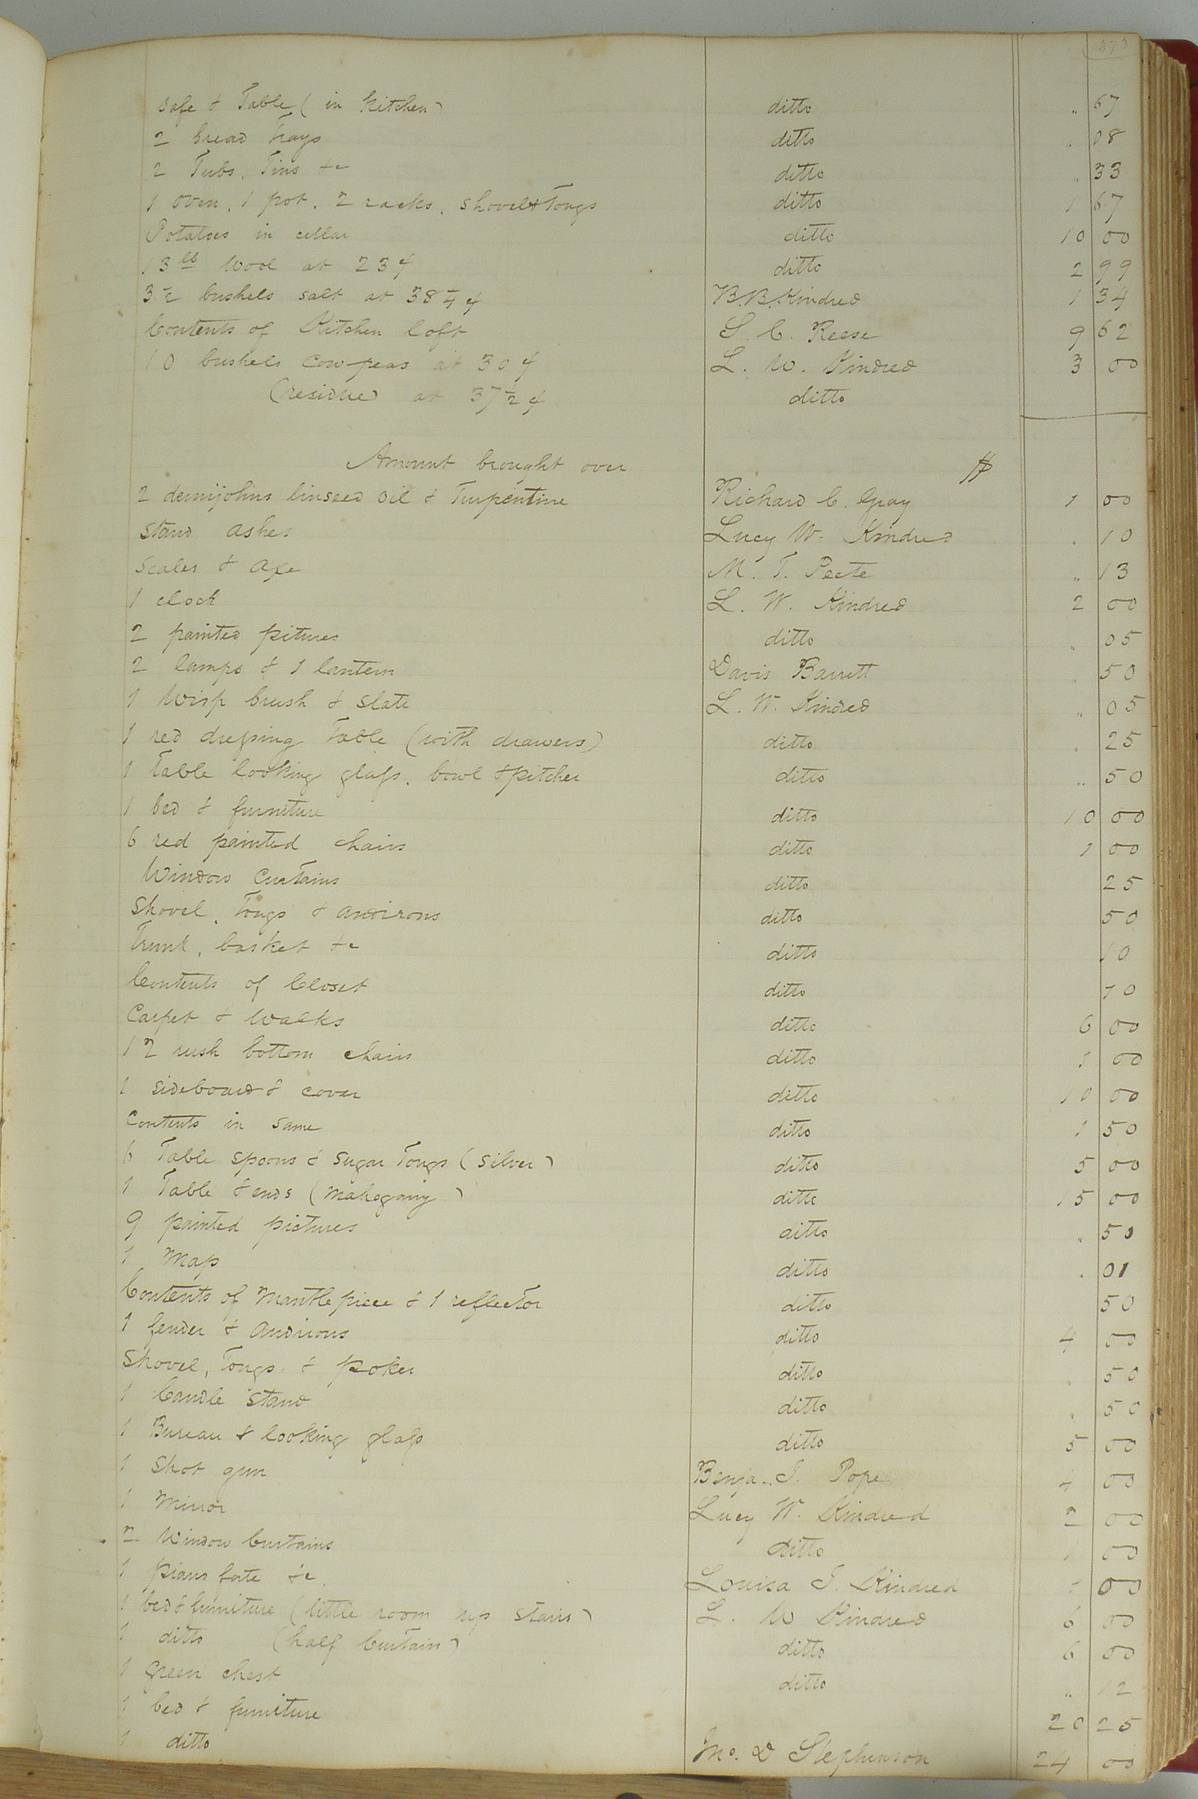 373
Safe & Table (in Kitchen) ditto " 67
2 bread Trays ditto " 08
2 Tubs, Tins &c ditto " 33
1 oven, 1 pot, 2 racks, shovel & Tongs ditto 1 67
Potatoes in cellar ditto 10 00
13 lb Wool at 23 ¢ ditto 2 99
3½ bushels salt at 38¼ ¢ B. B. Kindred 1 34
Contents of Kitchen loft S. C. Reese 9 62
10 bushels Cow peas at 30 ¢ L. W. Kindred 3 00
(residue) at 37½ ¢ ditto
Amount brought over $
2 demijohns linseed oil & Turpentine Richard C. Gray 1 00
Stand ashes Lucy W. Kindred " 10
Scales & Axe M. T. Peete " 13
1 clock L. W. Kindred 2 00
2 painted pitures ditto " 05
2 lamps & 1 lantern Davis Barrett " 50
1 Wisp brush & Slate L. W. Kindred " 05
1 red dressing Table (with drawers) ditto " 25
1 Table looking glass, bowl & pitcher ditto " 50
1 bed & furniture ditto 10 00
6 red painted chairs ditto 1 00
Window Curtains ditto 25
Shovel, Tongs & andirons ditto 50
Trunk, basket &c ditto 10
Contents of Closet ditto 10
Carpet & Walks ditto 6 00
12 rush bottom chairs ditto 1 00
1 sideboard & cover ditto 10 00
Contents in same ditto 1 50
6 Table spoons & sugar Tongs (silver) ditto 5 00
1 Table & ends (Mahogany) ditto 15 00
9 painted pictures ditto " 50
1 Map ditto " 01
Contents of Mantle piece & 1 reflector ditto 50
1 fender & Andirons ditto 4 00
Shovel, Tongs & poker ditto " 50
1 Candle Stand ditto " 50
1 Bureau & looking glass ditto 5 00
1 Shot gun Benja. J. Pope 4 00
1 Mirror Lucy W. Kindred 2 00
2 Window Curtains ditto 1 00
1 piano forte &c. Louisa J. Kindred 1 00
1 bed & furniture (little room up Stairs) L. W Kindred 6 00
1 ditto (half Curtain) ditto 6 00
1 green chest ditto " 12
1 bed & furniture 20 25
1 ditto Jno. D Stephenson 24 00